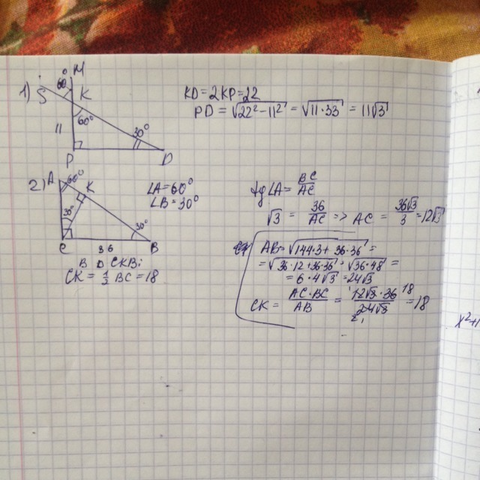 1)
M
60°
S
K
60°
11
30°
P
D
KD=2KP=22
PD=√22²-11² = √11·33 = 11√3
2)
A
60°
K
30°
30°
C
36
B
∠A=60°
∠B=30°
В Δ CKB:
CK = 1/2 BC = 18
tg∠A = BC/AC
√3 = 36/AC => AC = 36√3/3 = 12√3
AB = √144·3 + 36·36 =
= √36·12+36·36 = √36·48 =
= 6·4√3 = 24√3
CK = AC·BC/AB = 12√3·36/24√3 = 18
18
2
x²+1